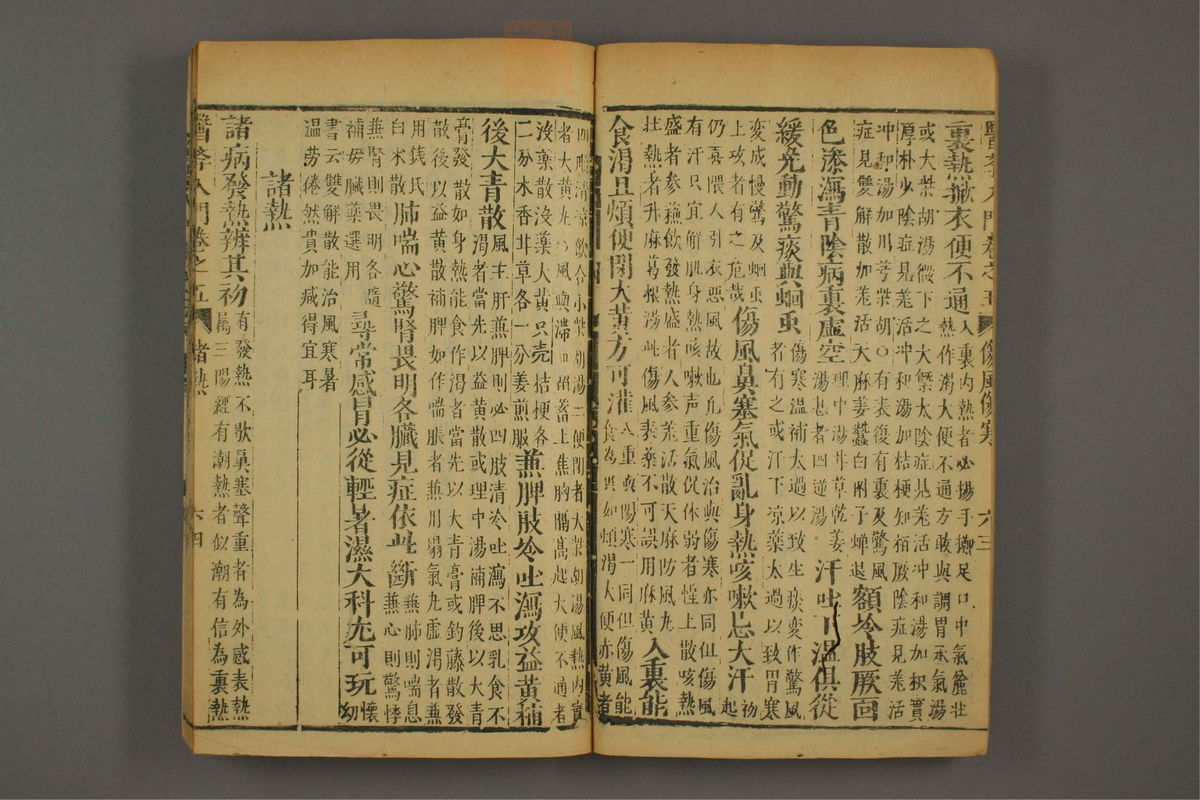 醫學入門卷之五 傷風傷寒 六三
裏熱揿衣便不通
入裏內熱者必揚手擲足口中氣麄壯
熱作渴大便不通方敢與調胃承氣湯
或大柴胡湯微下之大槩太陰症見羗活冲和湯加枳實
厚朴少陰症見羗活冲和湯加桔梗知栢厥陰症見羗活
冲和湯加川芎柴胡○有表復有裏及驚風
症見雙解散加羗活天麻姜蠶白附子蟬退
額冷肢厥面
色漆瀉青陰病裏虛空
理中湯甘草乾姜
湯甚者四逆湯
汗吐下溫俱從
緩免動驚痰與蛔虫
傷寒溫補太過以致生痰變作驚風
者有之或汗下凉藥太過以致胃寒
變成慢驚及蛔虫
上攻者有之危哉
傷風鼻塞氣促亂身熱咳嗽忌大汗
初
起
仍喜偎人引衣惡風故也凢傷風治與傷寒亦同但傷風
有汗只宜解肌身熱咳嗽声重氣促体弱者惺上散咳熱
盛者參蘇飲發熱盛者人參羗活散天麻防風丸
壯熱者升麻葛根湯此傷風表藥不可誤用麻黃
入裏能
食渴且煩便閉大黃方可灌
入裏與傷寒一同但傷風能
食為異如煩渴大便赤黃者
四順清凉飲合小柴胡湯二便閉者大柴胡湯風熱內實
者大黃丸風與滯血留蓄上焦胸膈高起大便不通者
沒藥散沒藥大黃只壳桔梗各
二分木香甘草各一分姜煎服
兼脾肢冷吐瀉攻益黃補
後大青散
風主肝兼脾則必四肢清冷吐瀉不思乳食不
渴者當先以益黃散或理中湯補脾後以大青
膏發散如身熱能食作渴者當先以大青膏或釣藤散發
散後以益黃散補脾如作喘脹者兼用塌氣丸虛渴者兼
用錢氏
白术散
肺喘心驚腎畏明各臟見症依此斷
兼肺則喘息
兼心則驚悸
兼腎則畏明各隨
補母臟藥選用
尋常感冒必從輕暑濕大科尤可玩
懷
幼
書云雙解散能治風寒暑
溫勞倦然貴加減得宜耳
諸熱
諸病發熱辨其初
有發熱不歇鼻塞聲重者為外感表熱
屬三陽經有潮熱者似潮有信為裏熱
醫學入門卷之五 諸熱 六四